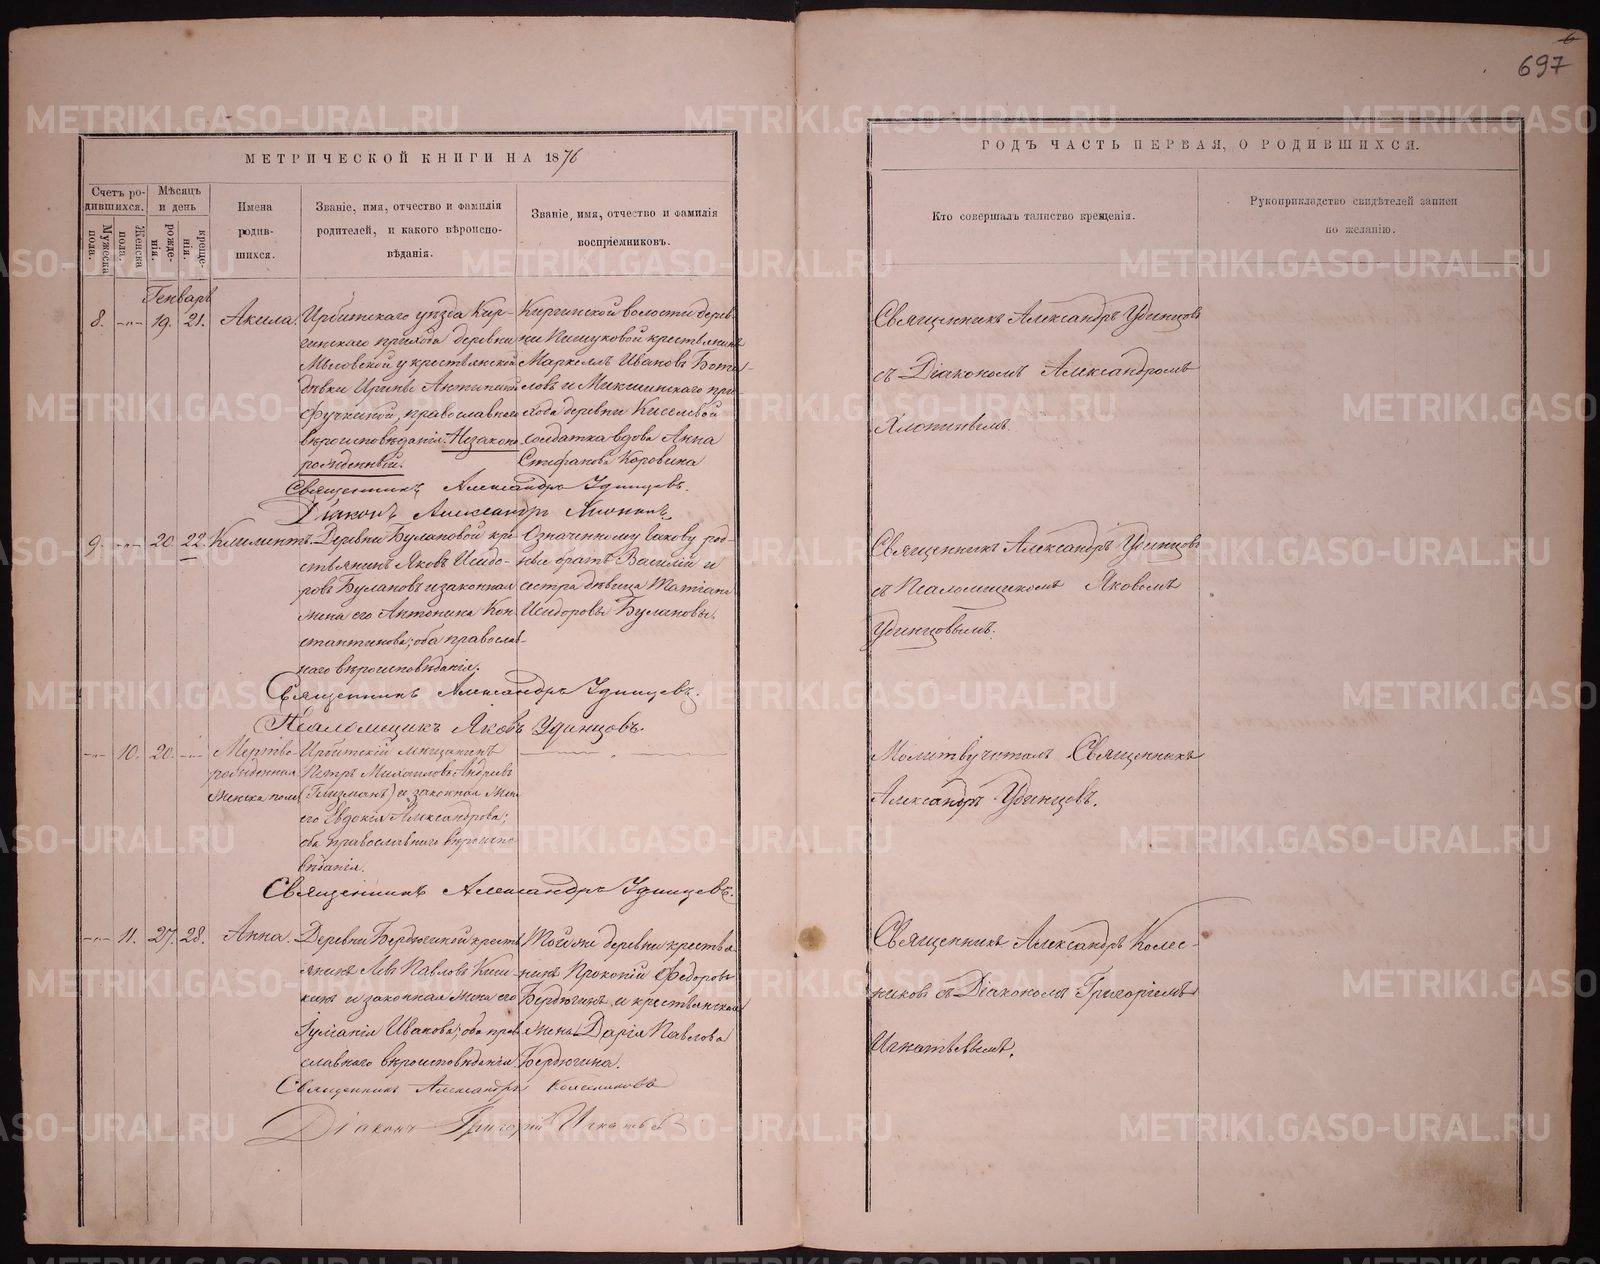 6
697
МЕТРИЧЕСКОЙ КНИГИ НА 1876
ГОДЪ ЧАСТЬ ПЕРВАЯ, О РОДИВШИХСЯ.
Счетъ родившихся.
Мужеска пола.
Женска пола.
Мѣсяцъ и день
рожденія.
крещенія.
Имена родившихся.
Званіе, имя, отчество и фамилія
родителей, и какого вѣроиспо-
вѣданія.
Званіе, имя, отчество и фамилія
воспріемниковъ.
Кто совершалъ таинство крещенія.
Рукоприкладство свидѣтелей записи
по желанію.
Генварь
8. 19. 21. Акила.
Ирбитскаго уѣзда Кир-
гинскаго прихода деревни
у крестьянской
дѣвки Ирины Антипиной
православнаго
вѣроисповѣданія. Незаконно
рожденный.
Киргинской волости дерев-
ни крестьянинъ
Маркеллъ Ивановъ
и при-
хода деревни
солдатка вдова Анна
Стефанова Коровина
Священникъ Александръ Удинцовъ
съ Діакономъ Александромъ
Священникъ Александръ Удинцовъ.
Діаконъ Александръ
9. 20. 22. Климентъ.
Деревни Булановой кре-
стьянинъ Яковъ Исидо-
ровъ Булановъ и законная
жена его Антонина Кон-
стантинова; оба православ-
наго вѣроисповѣданія.
Означенному Іакову род-
ные братъ Василій и
сестра дѣвица Татіана
Исидоровы Булановы.
Священникъ Александръ Удинцовъ
съ Псаломщикомъ Яковомъ
Удинцовымъ.
Священникъ Александръ Удинцовъ.
Псаломщикъ Яковъ Удинцовъ.
10. 20.
Мертво-
рожденная
женска пола
Ирбитскій мѣщанинъ
Петръ Михаиловъ Андреевъ
и законная жена
его Евдокія Александрова;
оба православнаго вѣроиспо-
вѣданія.
Молитву читалъ Священникъ
Александръ Удинцовъ.
Священникъ Александръ Удинцовъ.
11. 27. 28. Анна.
Деревни Бердюгиной кресть-
янинъ Левъ Павловъ
и законная жена его
Іуліанія Иванова; оба право-
славнаго вѣроисповѣданія
Той же деревни крестья-
нинъ Прокопій Федоровъ
Бердюгинъ и крестьянская
жена Дарія Павлова
Бердюгина.
Священникъ Александръ Колес-
никовъ съ Діакономъ Григоріемъ
Игнатьевымъ.
Священникъ Александръ Колесниковъ
Діаконъ Григорій Игнатьевъ
METRIKI.GASO-URAL.RU